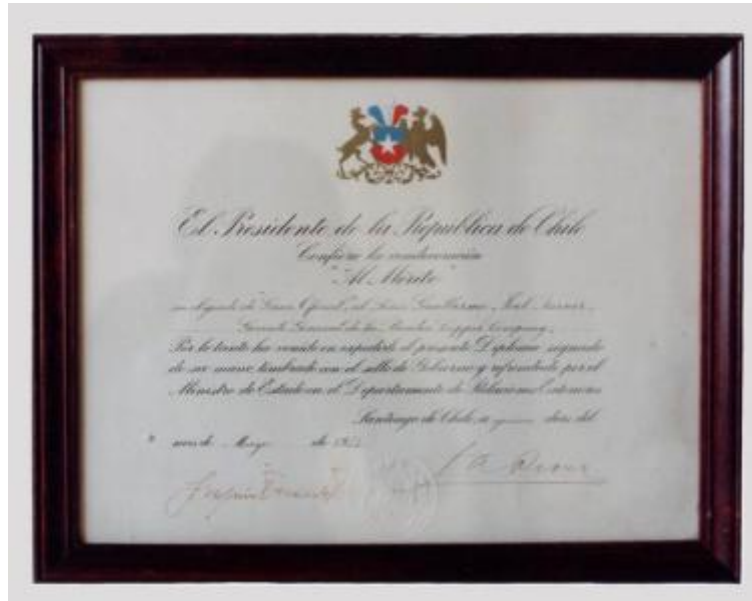 El Presidente de la República de Chile
Confiere la condecoración
"Al Mérito"
en el grado de Gran Oficial, al Señor Guillermo
Gerente General de la Copper Company,
Por lo tanto ha venido en expedirle el presente Diploma signado
de su mano, timbrado con el sello de Gobierno y refrendado por el
Ministro de Estado en el Departamento de Relaciones Exteriores
Santiago de Chile, a días del
mes de Mayo de